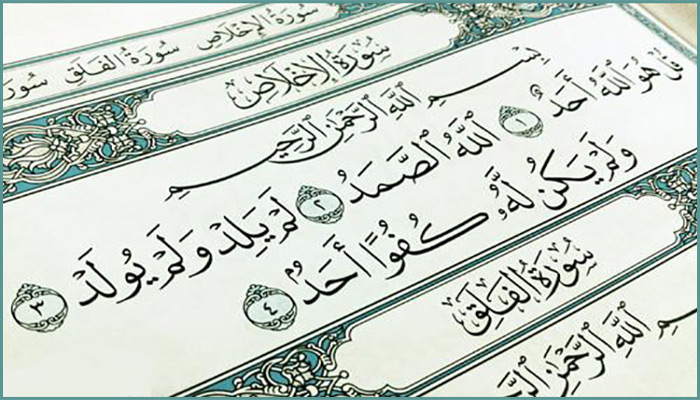 سُورَةُ الإِخْلَاصِ سُورَةُ الفَلَقِ سُورَ
سُورَةُ الإِخْلَاصِ
بِسْمِ ٱللَّهِ ٱلرَّحْمَٰنِ ٱلرَّحِيمِ
قُلْ هُوَ ٱللَّهُ أَحَدٌ ١ ٱللَّهُ ٱلصَّمَدُ ٢ لَمْ يَلِدْ وَلَمْ يُولَدْ ٣
وَلَمْ يَكُن لَّهُۥ كُفُوًا أَحَدٌۢ ٤
سُورَةُ الفَلَقِ
ٱللَّهِ ٱلرَّحْمَٰنِ